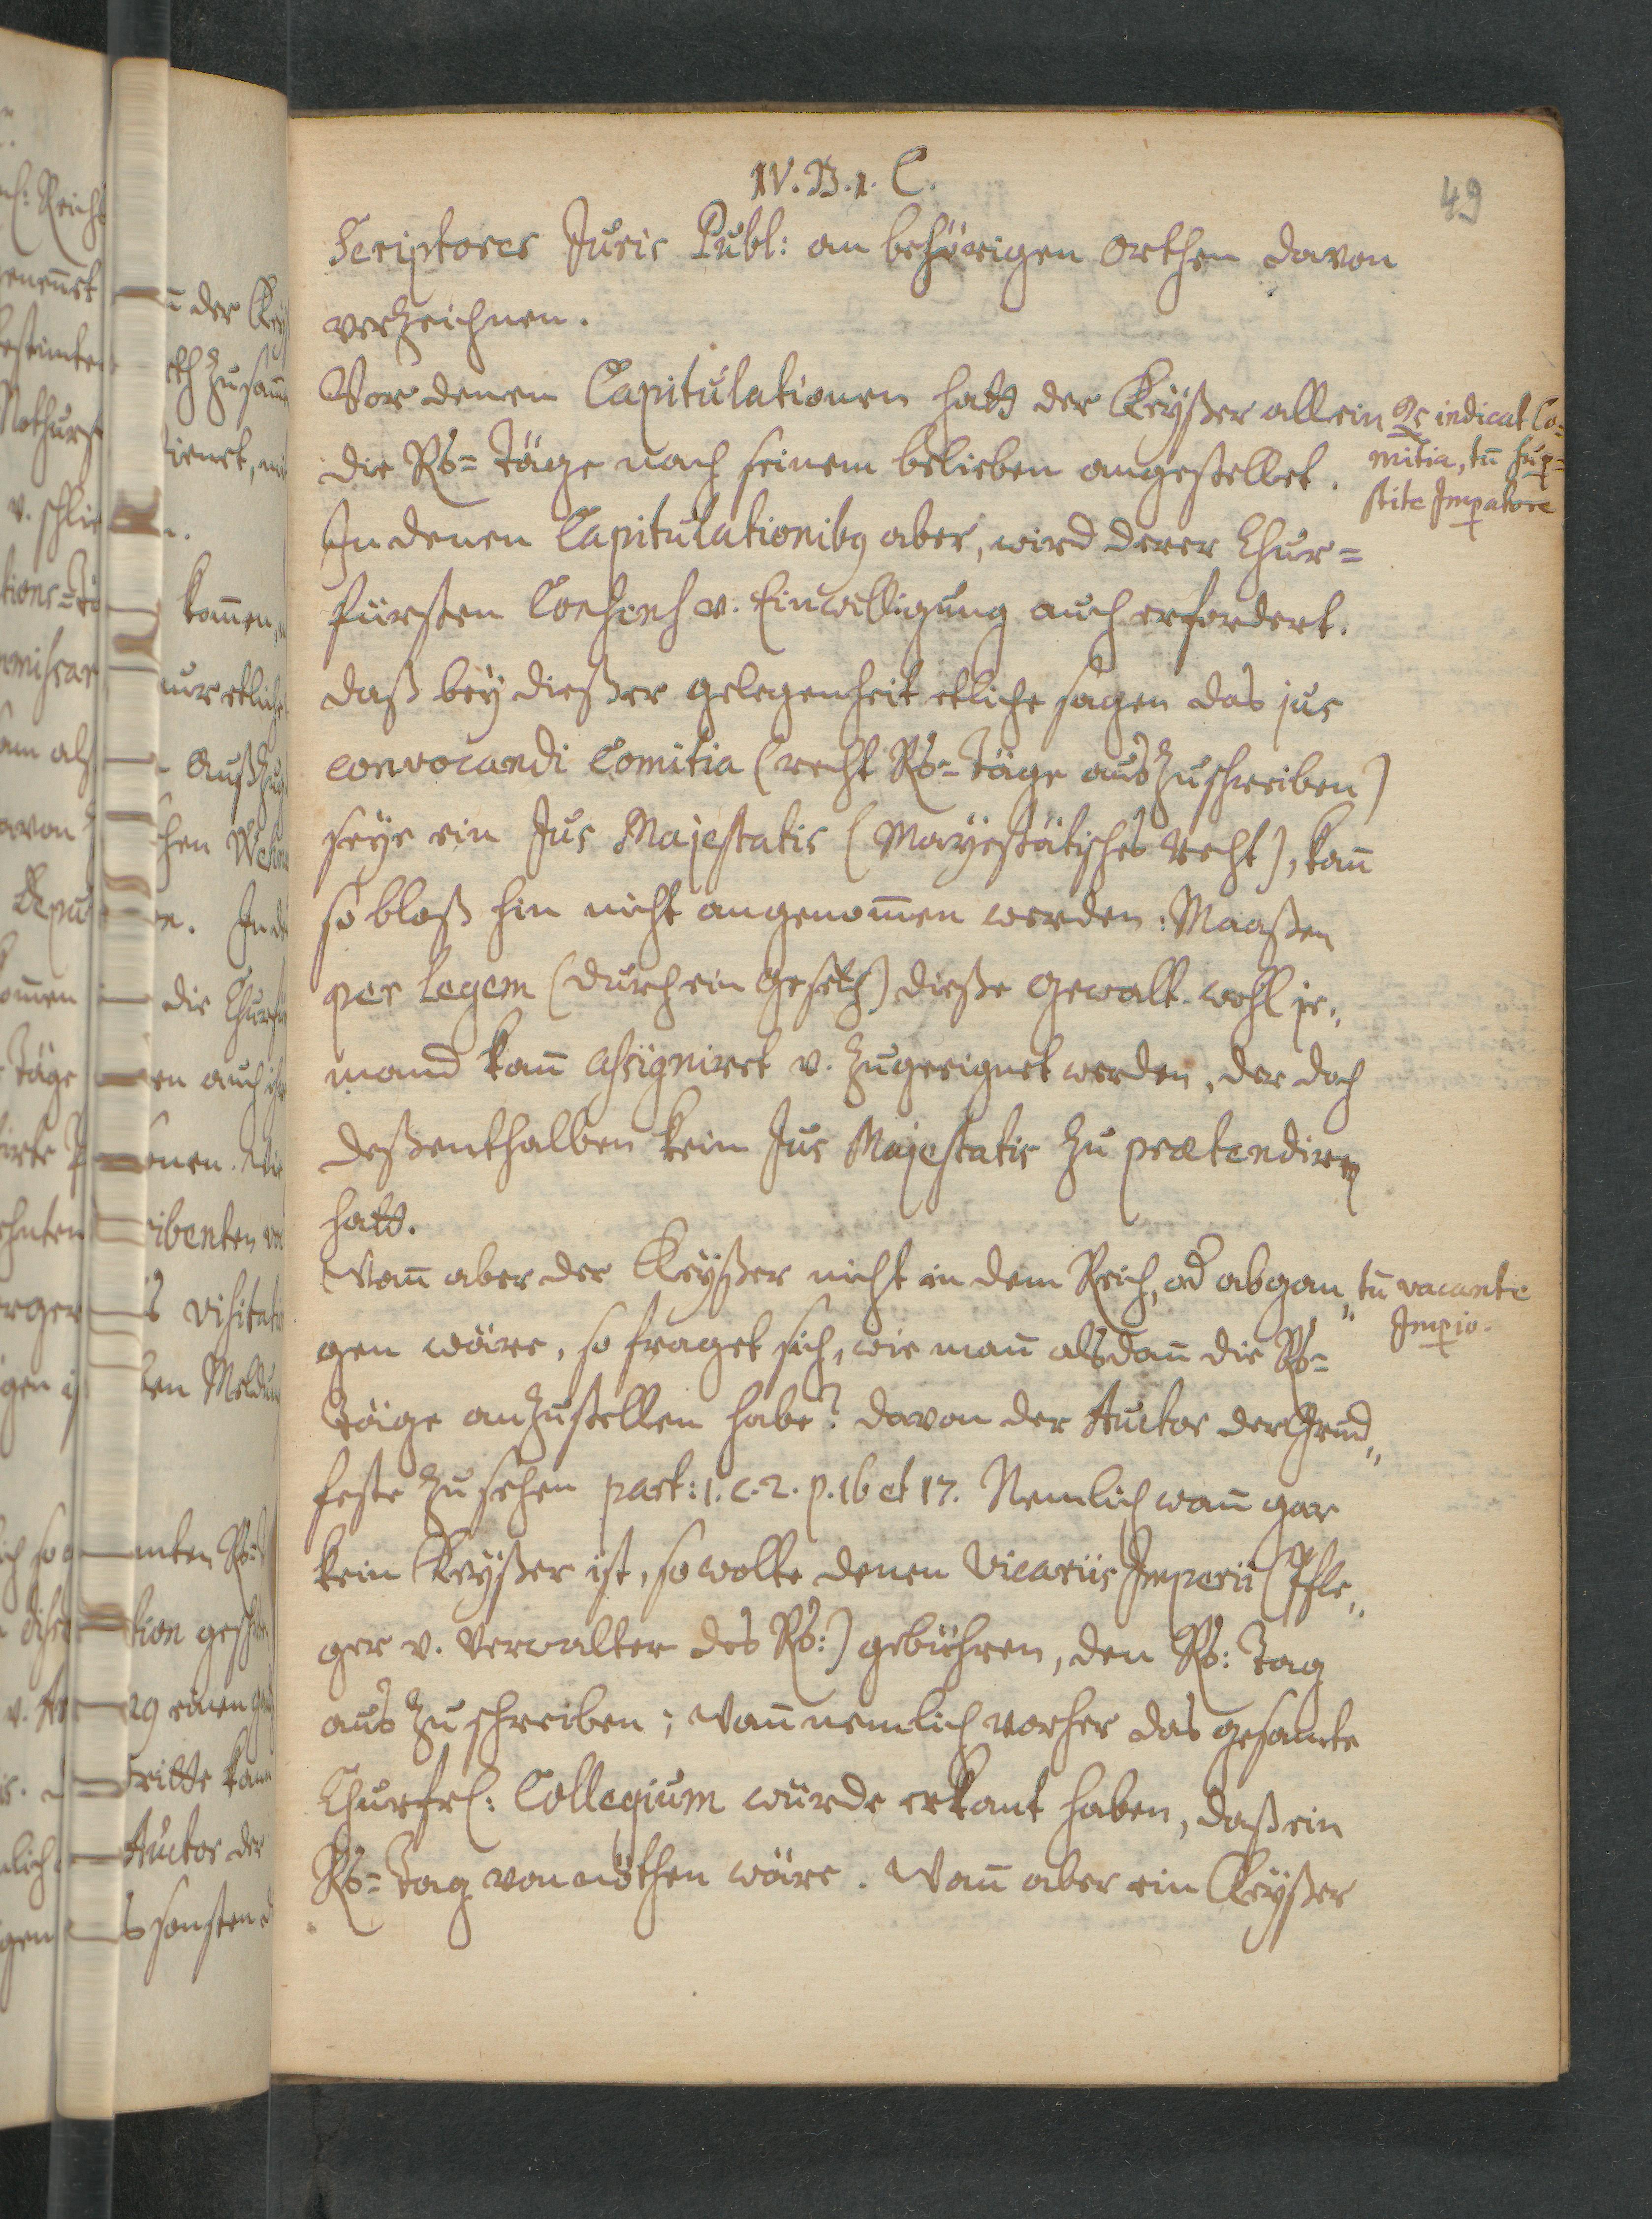 IV. B. 1. C.
49
Scriptores Juris Publ: an behörigen orthen davon
verzeichnen.
Vor denen Capitulationen hatt der Keyßer allein
die Rs= Täge nach seinem belieben angestellet.
Qs indicat Co=
mitia, tū sup=
stite Impatore
In denen Capitulationibq aber, wird derer Chur=
fürsten Consens v. Einwilligung auch erfordert.
Daß bey dießer gelegenheit etliche sagen das jus
convocandi Comitia (recht Rs= Täge auszuschreiben)
seye ein Jus Majestatis (Mayestätisches Recht), kañ
so bloß hin nicht angenom̄en werden: Maaßen
per legem (durch ein gesetz) dieße gewalt wohl je„
mand kañ assigniret v. zugeeignet werden, der doch
deßenthalben kein Jus Majestatis zu praetendiren
hatt.
Wañ aber der Keyßer nicht in dem Reich, od abgan„
tū vacante
Impio.
gen wäre, so fraget sich, wie mañ alsdañ die Rs=
Täge anzustellen habe? davon der Autor der Grund„
feste zu sehen part: 1. c. 2. p. 16 et 17. Nemlich wañ gar
kein Keyßer ist, so wolte denen Vicariis Imperii (Pfle„
ger v. Verwalter des Rs:) gebühren, den Rs: Tag
aus zu schreiben; Wañ nemlich vorher das gesamte
Churfrl: Collegium würde erkant haben, daß ein
Rs= Tag vonnöthen wäre. Wañ aber ein Keyßer